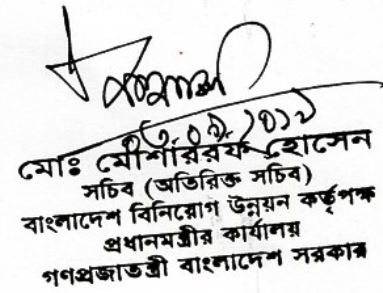 মোঃ মোশাররফ হোসেন
সচিব (অতিরিক্ত সচিব)
বাংলাদেশ বিনিয়োগ উন্নয়ন কর্তৃপক্ষ
প্রধানমন্ত্রীর কার্যালয়
গণপ্রজাতন্ত্রী বাংলাদেশ সরকার